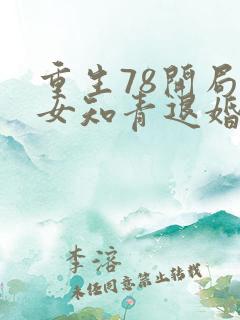 重生78開局
女知青退婚
李溶
未经同意禁止转载